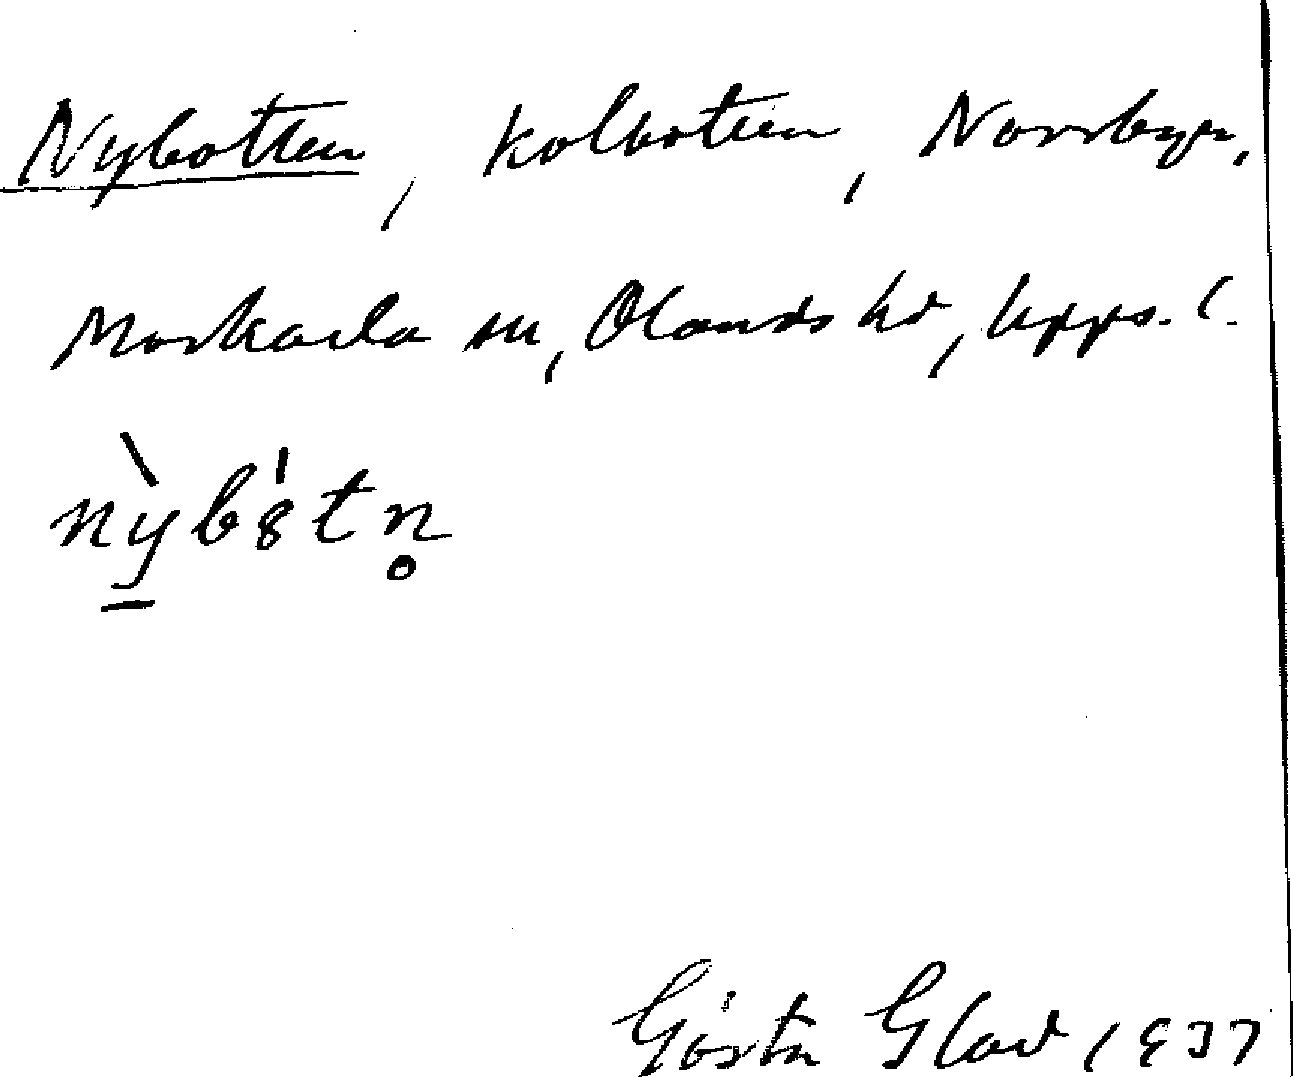 Nybotten, kolbotten, Norrbyn,
Morkarla sn, Olands hd, Upps. l.
nỳ̱bȣ́tn̥
Gösta Glad 1937